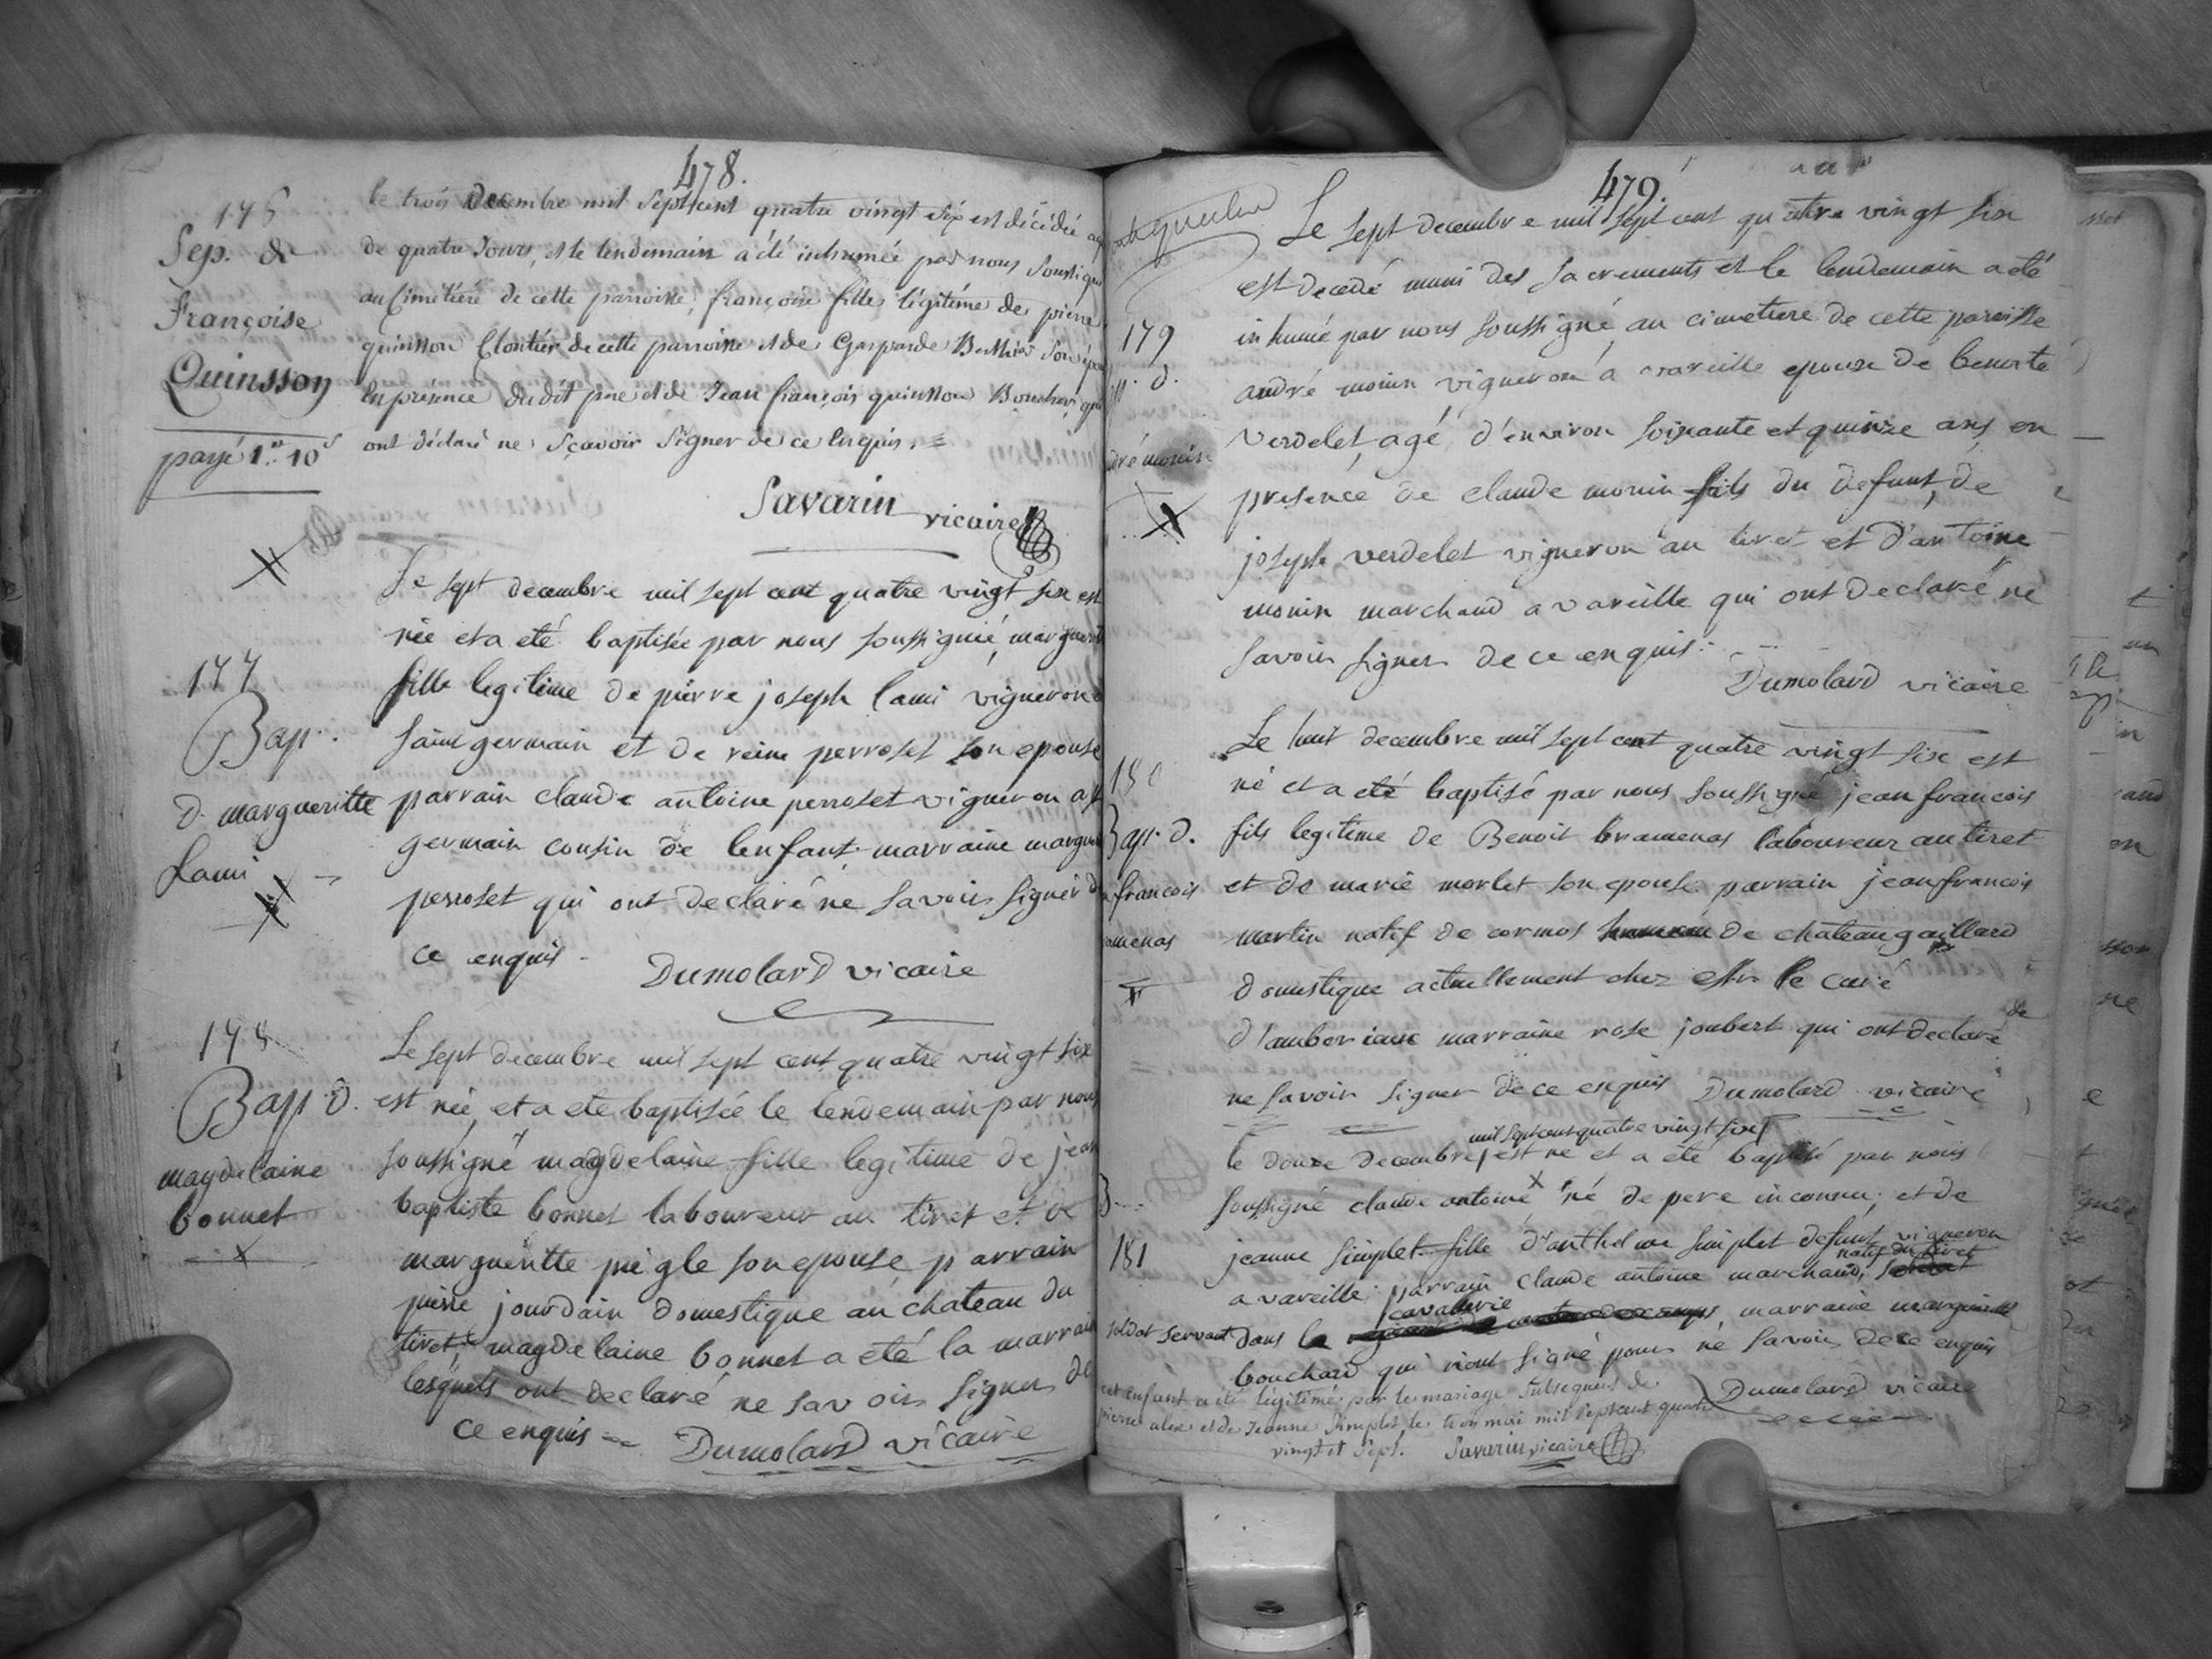 478.
176
Sep. de
Françoise
Quinsson
payé 1# 10s
le trois decembre mil sept cent quatre vingt six est décédée
de quatre Jours, et le lendemain a été inhumée par nous soussigné
au Cimetiere de cette parroisse, françoise fille légitime de pierre
quinsson Cloutier de cette parroisse et de Gasparde Berthier son
en présence du dit pere et de Jean françois quinsson
ont déclaré ne sçavoir signer de ce enquis.
Savarin vicaire
177
Bap.
d. margueritte
Lami
Le sept decembre mil sept cent quatre vingt six est
née et a eté baptisée par nous soussignié, marguerit
fille legitime de pierre joseph lami vigneron
saint germain et de reine perroset son epouse
parrain claude antoine perroset vigneron a st
germain cousin de lenfant marraine margue
perroset qui ont declaré ne savoir signer d
ce enquis - Dumolard vicaire
178
Bap. d.
magdelaine
bonnet
Le sept decembre mil sept cent quatre vingt six
est née, et a eté baptisée le lendemain par nous
soussigné magdelaine fille legitime de jean
baptiste bonnet laboureur au tiret et de
margueritte piegle son epouse parrain
pierre jourdain domestique au chateau du
tiret magdelaine bonnet a été la marrain
lesquels ont declaré ne savoir signer de
ce enquis - Dumolard vicaire
479.
179
. d.
dré monin
Le sept decembre mil sept cent quatre vingt six
est decedé muni des sacrements et le lendemain a eté
inhumé par nous soussigné, au cimetiere de cette paroisse
andré monin vigneron a vareille epoux de benoite
Verdelet, agé d'environ soixante et quinze ans, en
presence de claude monin fils du defunt, de
joseph verdelet vigneron au tiret et d'antoine
monin marchand a vareille qui ont declaré ne
savoir signer de ce enquis.
Dumolard vicaire
180
Bap. d.
n francois
amenas
Le huit decembre mil sept cent quatre vingt six est
né et a eté baptisé par nous soussigné jean francois
fils legitime de Benoit bramenas laboureur au tiret
et de marie morlet son epouse parrain jean francois
martin natif de cormos hameau de chateau gaillard
domestique actuellement chez le curé
d'amberieux marraine rose joubert qui ont declaré de
ne savoir signer de ce enquis Dumolard vicaire
B
181
mil sept cent quatre vingt six
le douze decembre est né et a eté baptisé par nous
soussigné claude antoine né de pere inconnu; et de
jeanne simplet fille d'anthelme simplet defunt vigneron
natif du tiret
a vareille parrain claude antoine marchand, soldat
cavalerie
soldat servant dans la marraine margueritte
bouchard qui n'ont signé pour ne savoir de ce enquis
Dumolard vicaire
cet enfant a été légitimé par le mariage subsequent de
pierre alex et de Jeanne Simplet le trois mai mil sept cent quatre
vingt et sept. Savarin vicaire